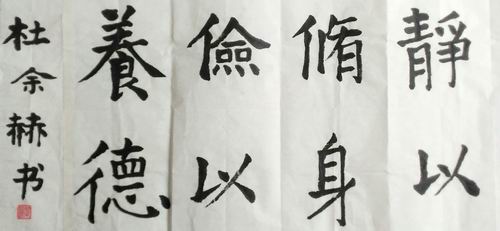 靜以
脩身
儉以
養德
杜余赫书